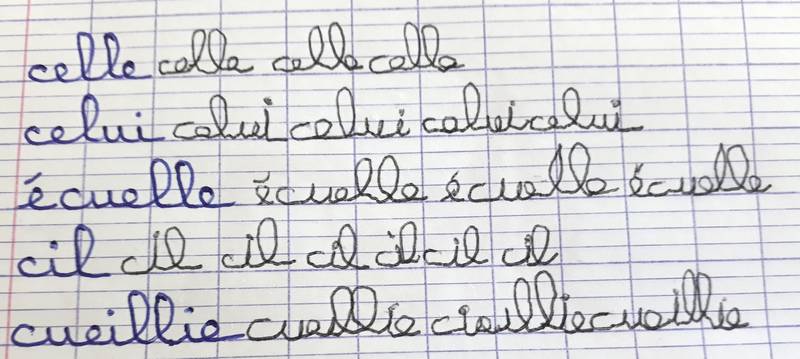 celle celle celle celle
celui celui celui celui celui
écuelle écuelle écuelle écuelle
cil cil cil cil cil cil cil
cueillie cueillie cueillie cueillie